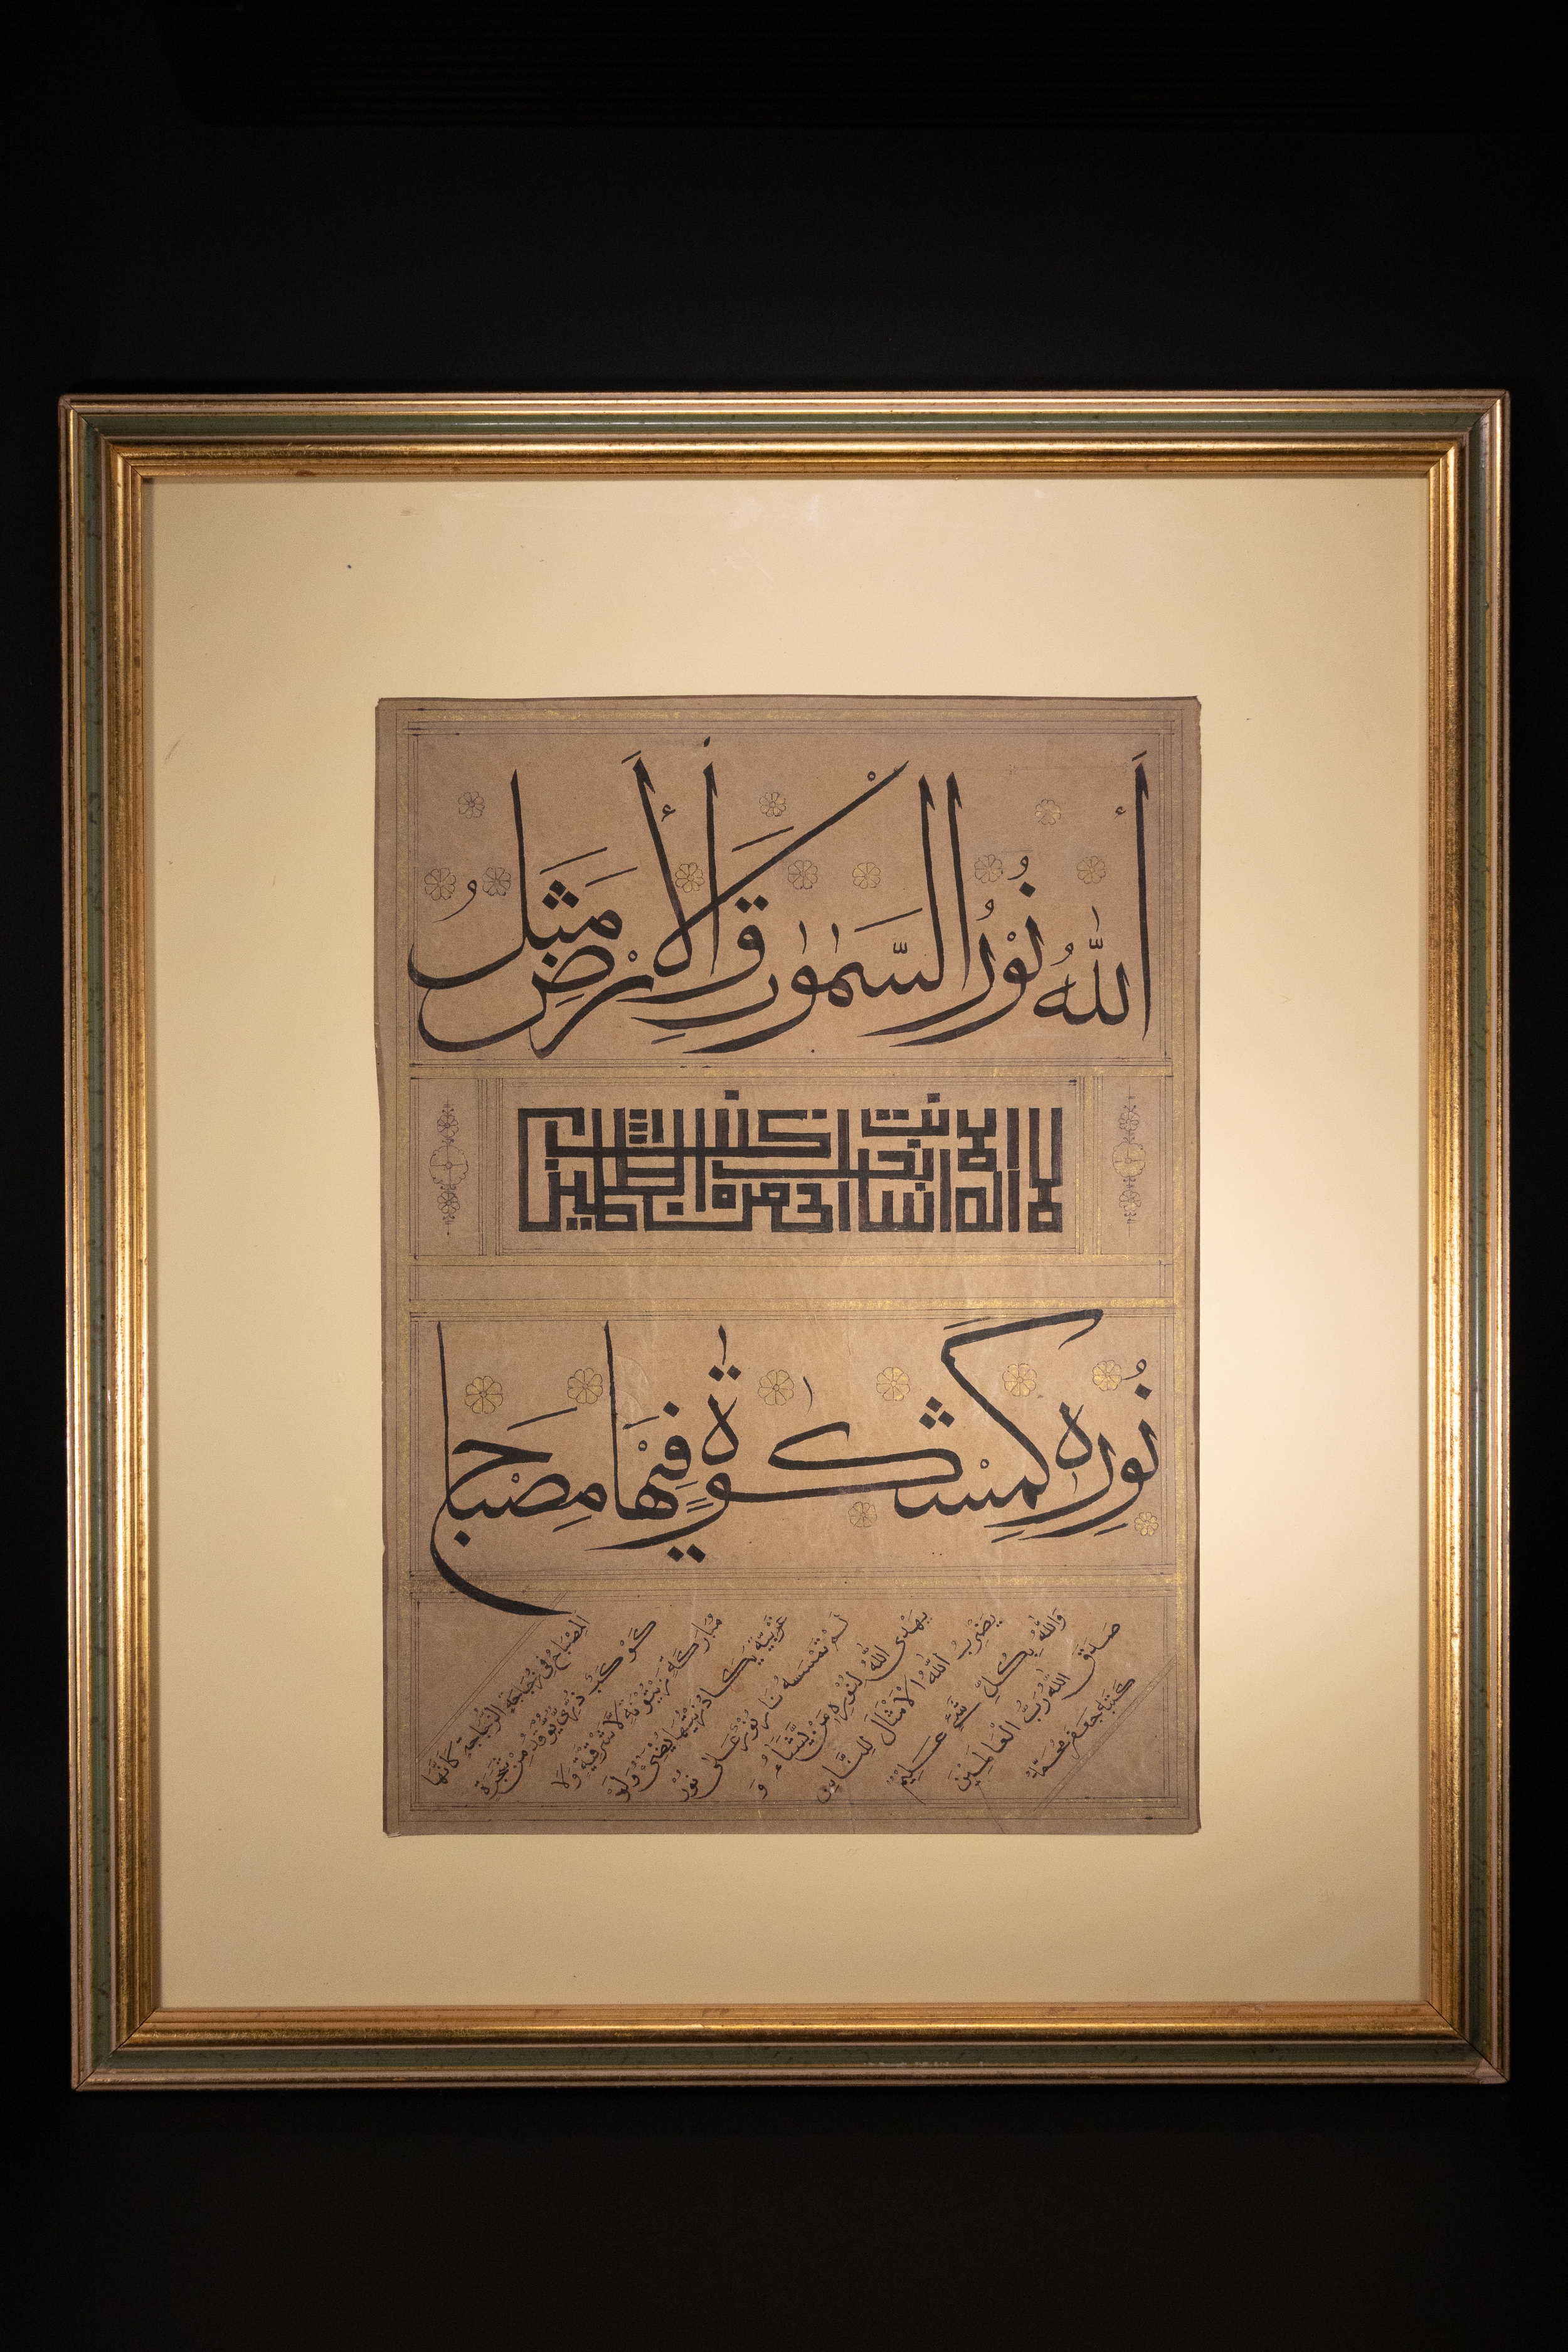 أَللّٰهُ نُوْرُ السَّمٰوٰتِ وَالْأَرْضِ مَثَلُ
لا اله الا انت سبحانك انى كنت من الظلمين
نُوْرِهٖ كَمِشْكٰوةٍ فِيْهَا مِصْبَاح
اَلْمِصْبَاحُ فِى زُجَاجَةٍ اَلزُّجَاجَةُ كَاَنَّهَا
كَوْكَبٌ دُرِّىٌّ يُّوْقَدُ مِنْ شَجَرَةٍ
مُبَارَكَةٍ زَيْتُوْنَةٍ لَّاشَرْقِيَّةٍ وَلَا
غَرْبِيَّةٍ يَكَادُ زَيْتُهَا يُضِىْٓءُ وَلَوْ
لَمْ تَمْسَسْهُ نَارٌ نُوْرٌ عَلٰى نُوْرٌ
يَهْدِى اللّٰهُ لِنُوْرِهٖ مَنْ يَّشَاءُ وَ
يَضْرِبُ اللّٰهُ الْاَمْثَالَ لِلنَّاسِ
وَاللّٰهُ بِكُلِّ شَىْءٍ عَلِيْمٌ
صَدَقَ اللّٰهُ رَبُّ الْعَالَمِيْنَ
كَتَبَهٗ جَعْفَر مُحَمَّد